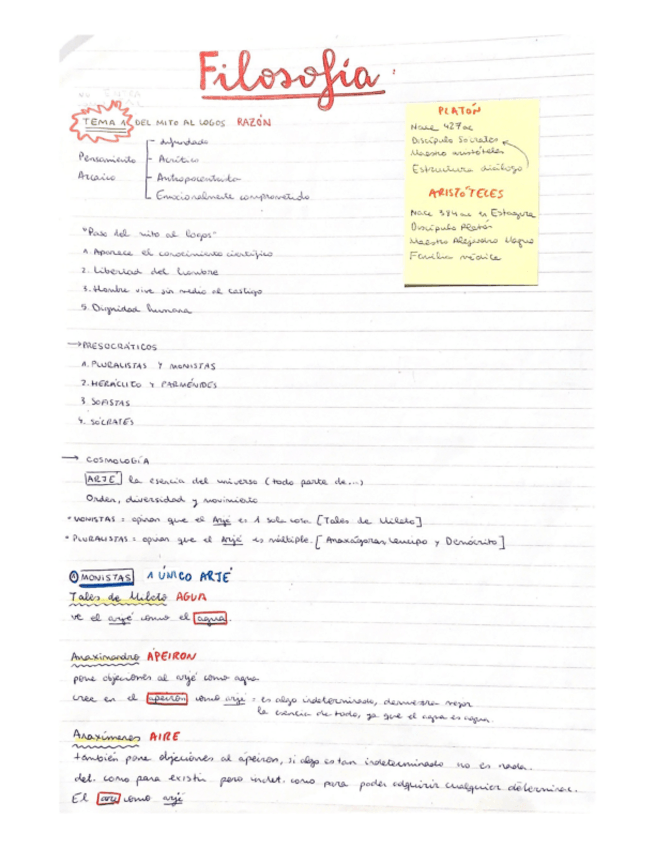 Filosofía
TEMA 1 DEL MITO AL LOGOS RAZÓN
Pensamiento
Arcaico
Infundado
Acrítico
Antropocentrico
Emocionalmente comprometido
PLATÓN
Nace 427ac
Discípulo Sócrates
Maestro aristóteles
Estructura diálogo
ARISTÓTELES
Nace 384ac en Estagira
Discípulo Platón
Maestro Alejandro Magno
Familia médica
"Paso del mito al logos"
1. Aparece el conocimiento científico
2. Libertad del hombre
3. Hombre vive sin miedo al castigo
5. Dignidad humana
→ PRESOCRÁTICOS
1. PLURALISTAS Y MONISTAS
2. HERÁCLITO Y PARMÉNIDES
3 SOFISTAS
4. SÓCRATES
→ COSMOLOGÍA
ARJÉ la esencia del universo (todo parte de...)
Orden, diversidad y movimiento
* MONISTAS: opinan que el Arjé es 1 sola cosa [Tales de Mileto]
* PLURALISTAS: opinan que el Arjé es múltiple. [Anaxágoras, Leucipo y Demócrito]
① MONISTAS 1 ÚNICO ARJÉ
Tales de Mileto AGUA
ve el arjé como el agua.
Anaximandro ÁPEIRON
pone objeciones al arjé como agua
cree en el apeiron como arjé: es algo indeterminado, demuestra mejor
la esencia de todo, ya que el agua es agua.
Anaxímenes AIRE
también pone objeciones al ápeiron, si algo es tan indeterminado no es nada.
det. como para existir pero indet. como para poder adquirir cualquier determinac.
El aire como arjé